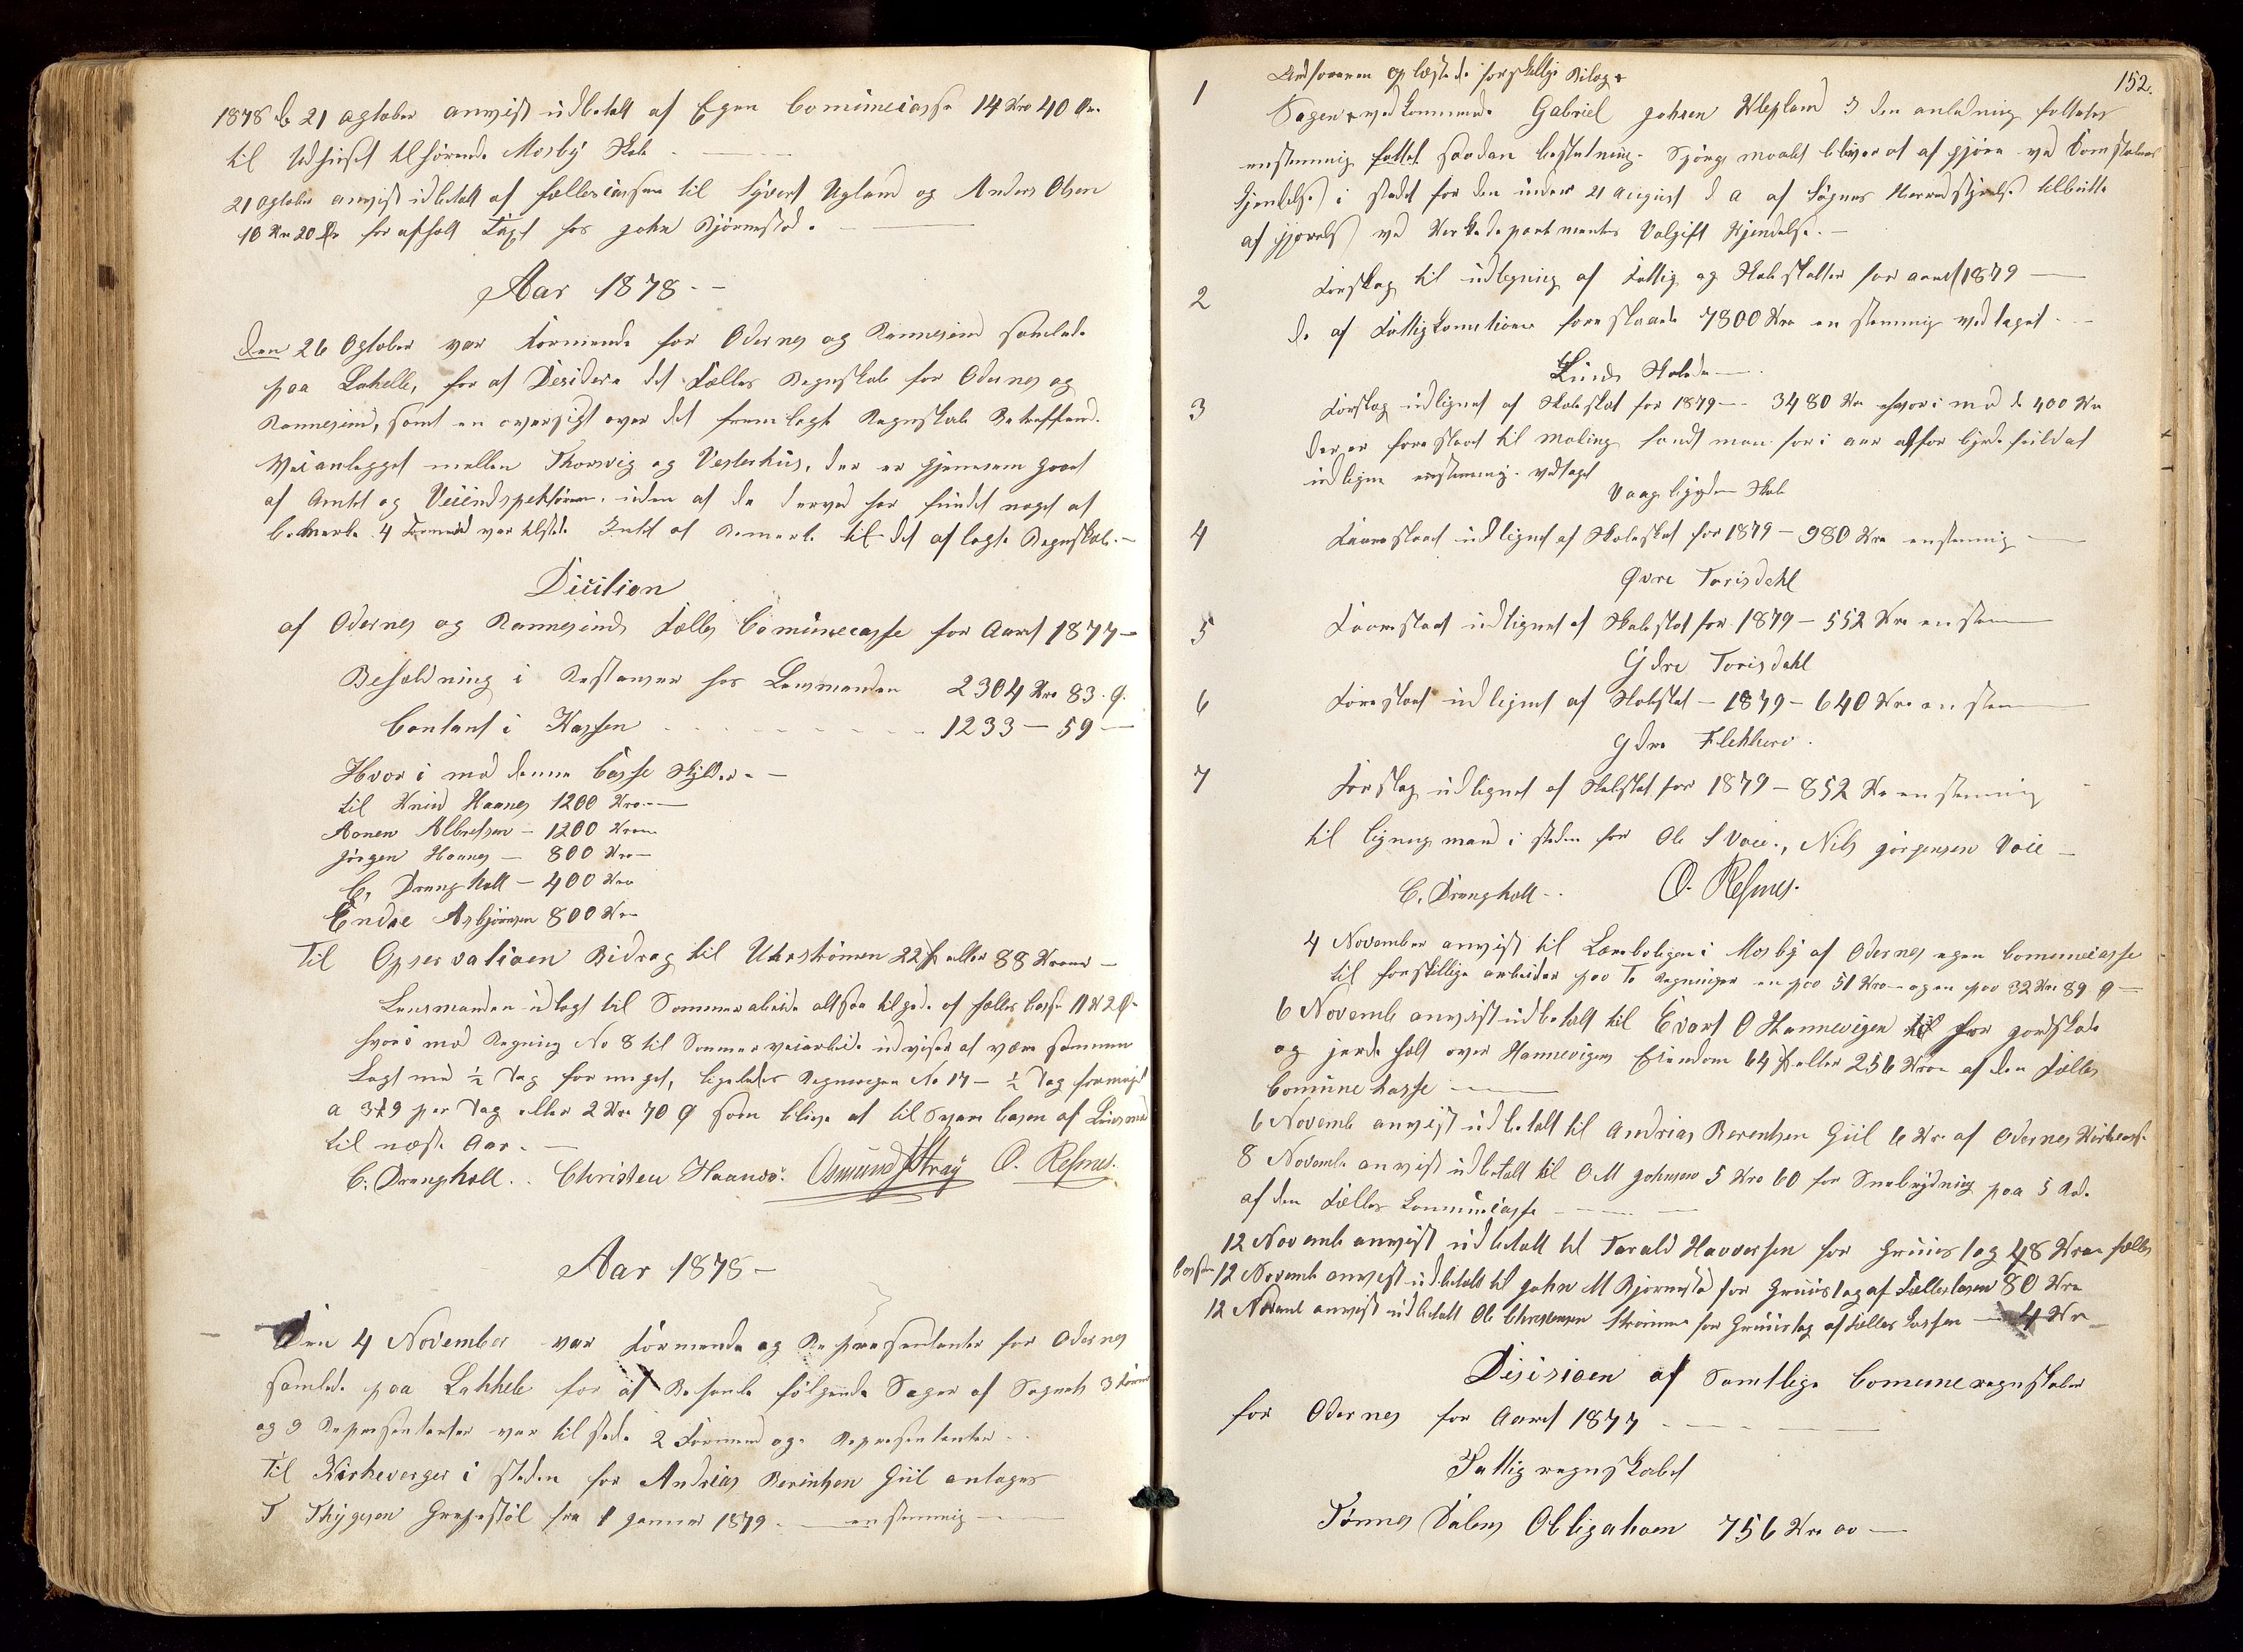 1878 d 21 Agtober anvist udbetalt af Egen Comunecasse 14 Kro 40 Øre
til Udhuset tilhørende Mosby Skole
21 Agtober anvist udbetalt af fællescassen til Syvert Ugland og Anders Olsen
10 Kr 20 Ør for afholt Taxt hos John Bjørnestad.
Aar 1878 - -
Den 26 Ogtober var Formænde for Odernes og Rannesund samlede
paa Lahelle, for at Desidere det Fælles Regnskab for Odernes og
Rannesund, samt en oversigt over det fremlagte Regnskab Betreffend.
Veianlægget mellem Thorsvig og Vesterhus, der er gjennem gaaet
af Amtet og Veiindspektøren, uden at de derved har fundet noget at
bemærke. 4 Formænd var tilstede Intet at Bemærke til det aflagte Regnskab.-
Dicition
af Odernes og Rannesunds Fælles Comunecasse for Aaret 1877 -
Beholdning i Restanser hos Lensmanden 2304 Kro 83. Ø.
Contant i Kassen - - - - - - 1233 - 59 -
Hvor i mod denne Casse skylder. -
til Knud Haanes 1200 Kro -
Aanen Albretsen - 1200 Kron
Jørgen Haanes - 800 Kro -
C, Drangholt - 400 Kro
Endre Asbjørnsen 800 Kro
Til Opservatioen Bidrag til Uhrstrømen 22 ß eller 88 Kroner -
Lensmanden udlagt til Sommerabeide altsaa tilgode af fælles Casse 11 K 2 Ø
hvori mod Regning No 8 til Sommerveiarbeide udviser at være sammen
Lagt med ½ Dag for meget, ligeledes Regningen No 17 - ½ Dag formeget
a per Dag eller 2 Kr 70 Ø som blive at til Svare Casen af Lensmd
til næste Aar. -
C. Drangholt. . Christen Haanes. Osmund Stray O. Refsnes.
Aar 1878 -
Den 4 November var Formænde og Repræsentanter for Odernes
samlede paa Lahhele for at Behandle følgende Sager af Sognets 3 Formæ
og 9 Representanter var tilstede 2 Formænd og Representanter - -
Til Kirkeverger i steden for Andreas Berintsen Giil antages
T Thygesen Grepstøl fra 1 Januar 1879 - enstemmig -
152.
1 Ordføreren oplæste de forskellige Bilage
Sagen vedkommende Gabriel Johnsen Klepland I den anledning fattedes
enstemmig fattet saadan beslutning. Spørgsmaalet bliver at afgjøre ved Domstolens
Kjendelse i stedet for den under 21 August d A af Søgnes Herredstyrelse tilbudte
afgjørelse ved Kirkedepartmentes Volgift Kjendelse. -
2 Forslag til udligning af Fattig og Skoleskatter for aaret 1879 -
de af Fattigkomitionen foreslaaede 7800 Kro enstemmig vedtaget - -
Lunds Skole -
3 Forslag udlignet af Skoleskat for 1879 - 3480 Kr hvori mod de 400 Kr
der er foreslaaet til maling fandt man for i aar
udligne enstemmig. vedtaget
Vaagsbygdens Skole
4 Foreslaaet udlignet af Skoleskat for 1879 - 980 Kro enstemmig -
Øvre Torisdahl
5 Foreslaaet udlignet af Skoleskat for 1879 - 552 Kro enstem
Ydre Torisdahl
6 Foreslaaet udlignet af Skolskat - 1879 - 640 Kro enstem
Ydre Flekkerø.
7 Forslag udlignet af Skolskat for 1879 - 852 Kr enstemmig
til ligningsmand i steden for Ole S Voie., Nils Jørgensen Voie -
C. Drangholt - . O. Refsnes.
4 November anvist til Lærboligen i Mosby af Odernes egen Comunecasse
til forskillige arbeider paa To Regninger en paa 51 Kro - og en paa 32 Kr 89 Ø -
6 Novemb anvist udbetalt til Evart O Hannevigen for gordskade
og jordefalt over Hannevigens Eiendom 64 ß eller 256 Kron af den Fælles
Comune kasse
6 Novemb anvist udbetalt til Andrias Berentsen Giil 6 Kr. af Odernes Kirkecasse
8 Novembe anvist udbetalt til O M Johnsen 5 Kro 60 for Snebrydning paa 5 Rode
af den Fælles Comunecasse - - -
12 Novemb anvist udbetalt til Tarald Havorsen for Gruustag 48 Kron fælles
Cassen 12 Novemb anvist udbetalt til John M Bjørnestad for Gruustag af Fælleskasen 80 Kro
12 Novemb anvist udbetalt Ole Christensen Strømme for Gruustag af Fælles Cassen - 4 Kro
Disisioen af Samtlige Comuneregnskaber
for Odernes for Aaret 1877 - - -
Fattigregnskabet
Tønnes Dalens Obligatioen 756 Kro 00 -